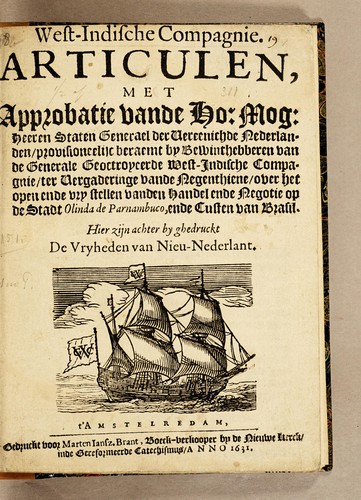 West-Indische Compagnie.
ARTICULEN,
MET
Approbatie vande Ho: Mog:
Heeren Staten Generael der Vereenichde Nederlan-
den/provisioneelijc beraemt by Bewinthebberen van
de Generale Geoctroyeerde West-Indische Compa-
gnie/ter Vergaderinge vande Negenthiene/over het
open ende vry stellen vanden Handel ende Negotie op
de Stadt Olinda de Parnambuco, ende Custen van Brasil.
Hier zijn achter by ghedruckt
De Vryheden van Nieu-Nederlant.
t'AMSTELREDAM,
Gedruckt voor Marten Iansz. Brant, Boeck-verkooper by de Nieuwe Kerck/
inde Gereformeerde Catechismus/ANNO 1631.